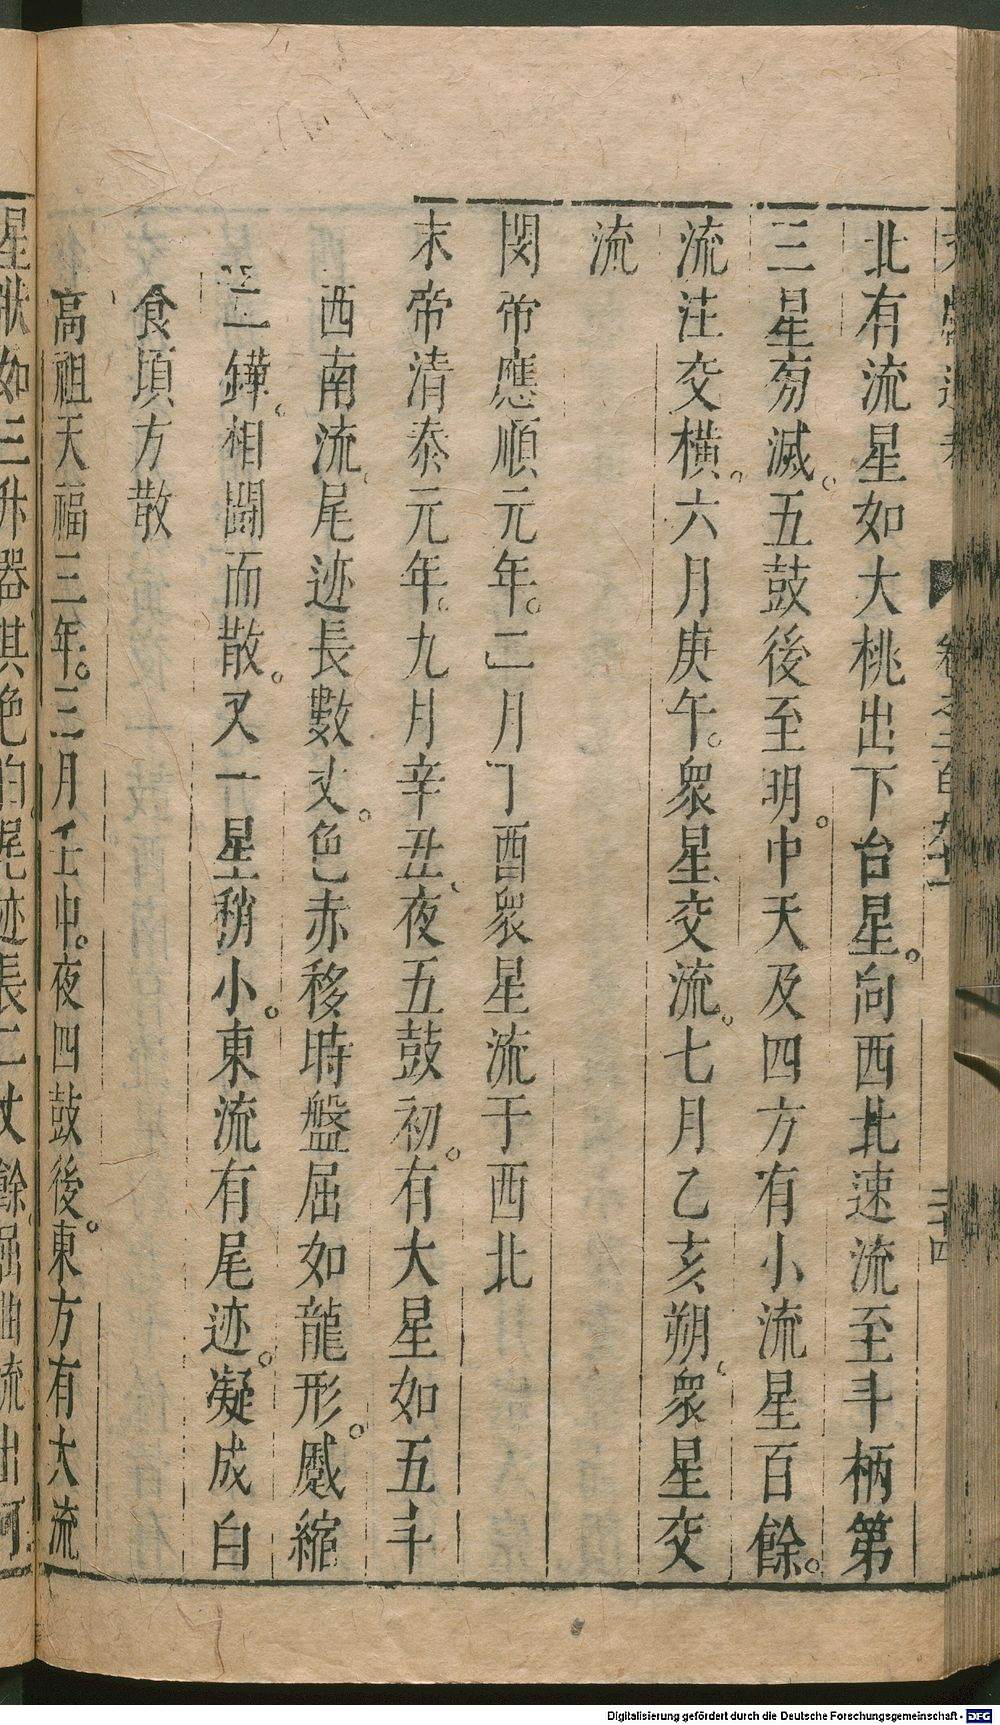 卷之二百九十一 二十四
北有流星如大桃出下台星。向西北速流至斗柄第
三星旁滅。五鼓後至明。中天及四方有小流星百餘。
流注交橫。六月庚午。眾星交流。七月乙亥朔、眾星交
流
閔帝應順元年。二月丁酉眾星流于西北
末帝清泰元年。九月辛丑、夜五鼓初。有大星如五斗
西南流、尾迹長數丈。色赤移時盤屈如龍形。蹙縮
二鏵。相鬬而散。又一星稍小。東流有尾迹。凝成白
食頃方散
高祖天福三年。三月壬申。夜四鼓後。東方有大流
星狀如三升器其色白。尾迹長二丈餘屈曲流出河
Digitalisierung gefördert durch die Deutsche Forschungsgemeinschaft - DFG